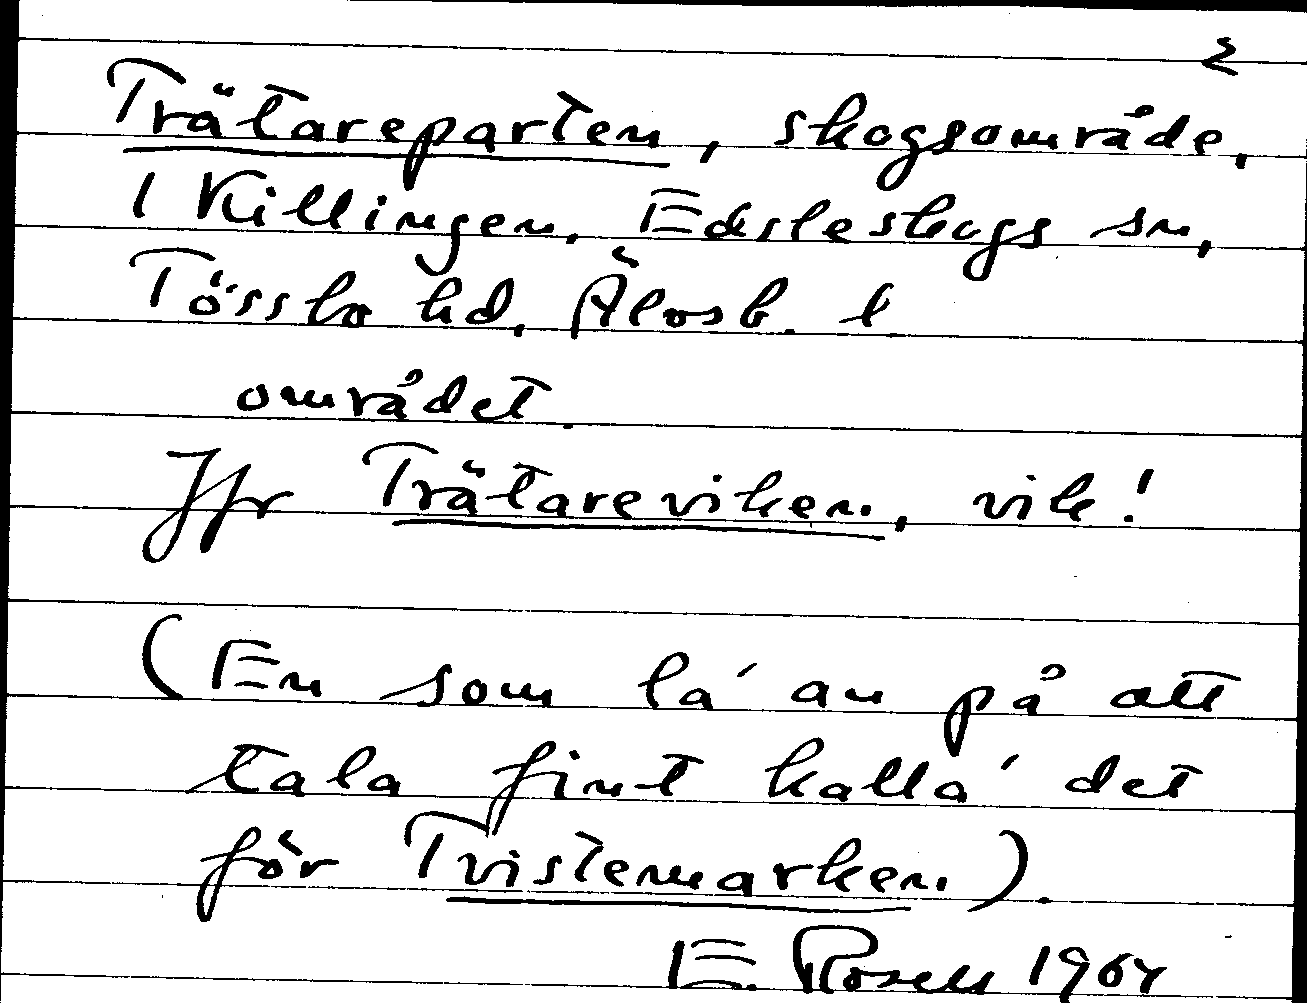 2
Trätareparten, skogsområde,
i Killingen. Edsleskogs sn,
Tössbo hd. Älvsb. l.
området.
Jfr Trätareviken, vik!
(En som la' an på att
tala fint kalla' det
för Tvistemarken).
E. Rosell 1964